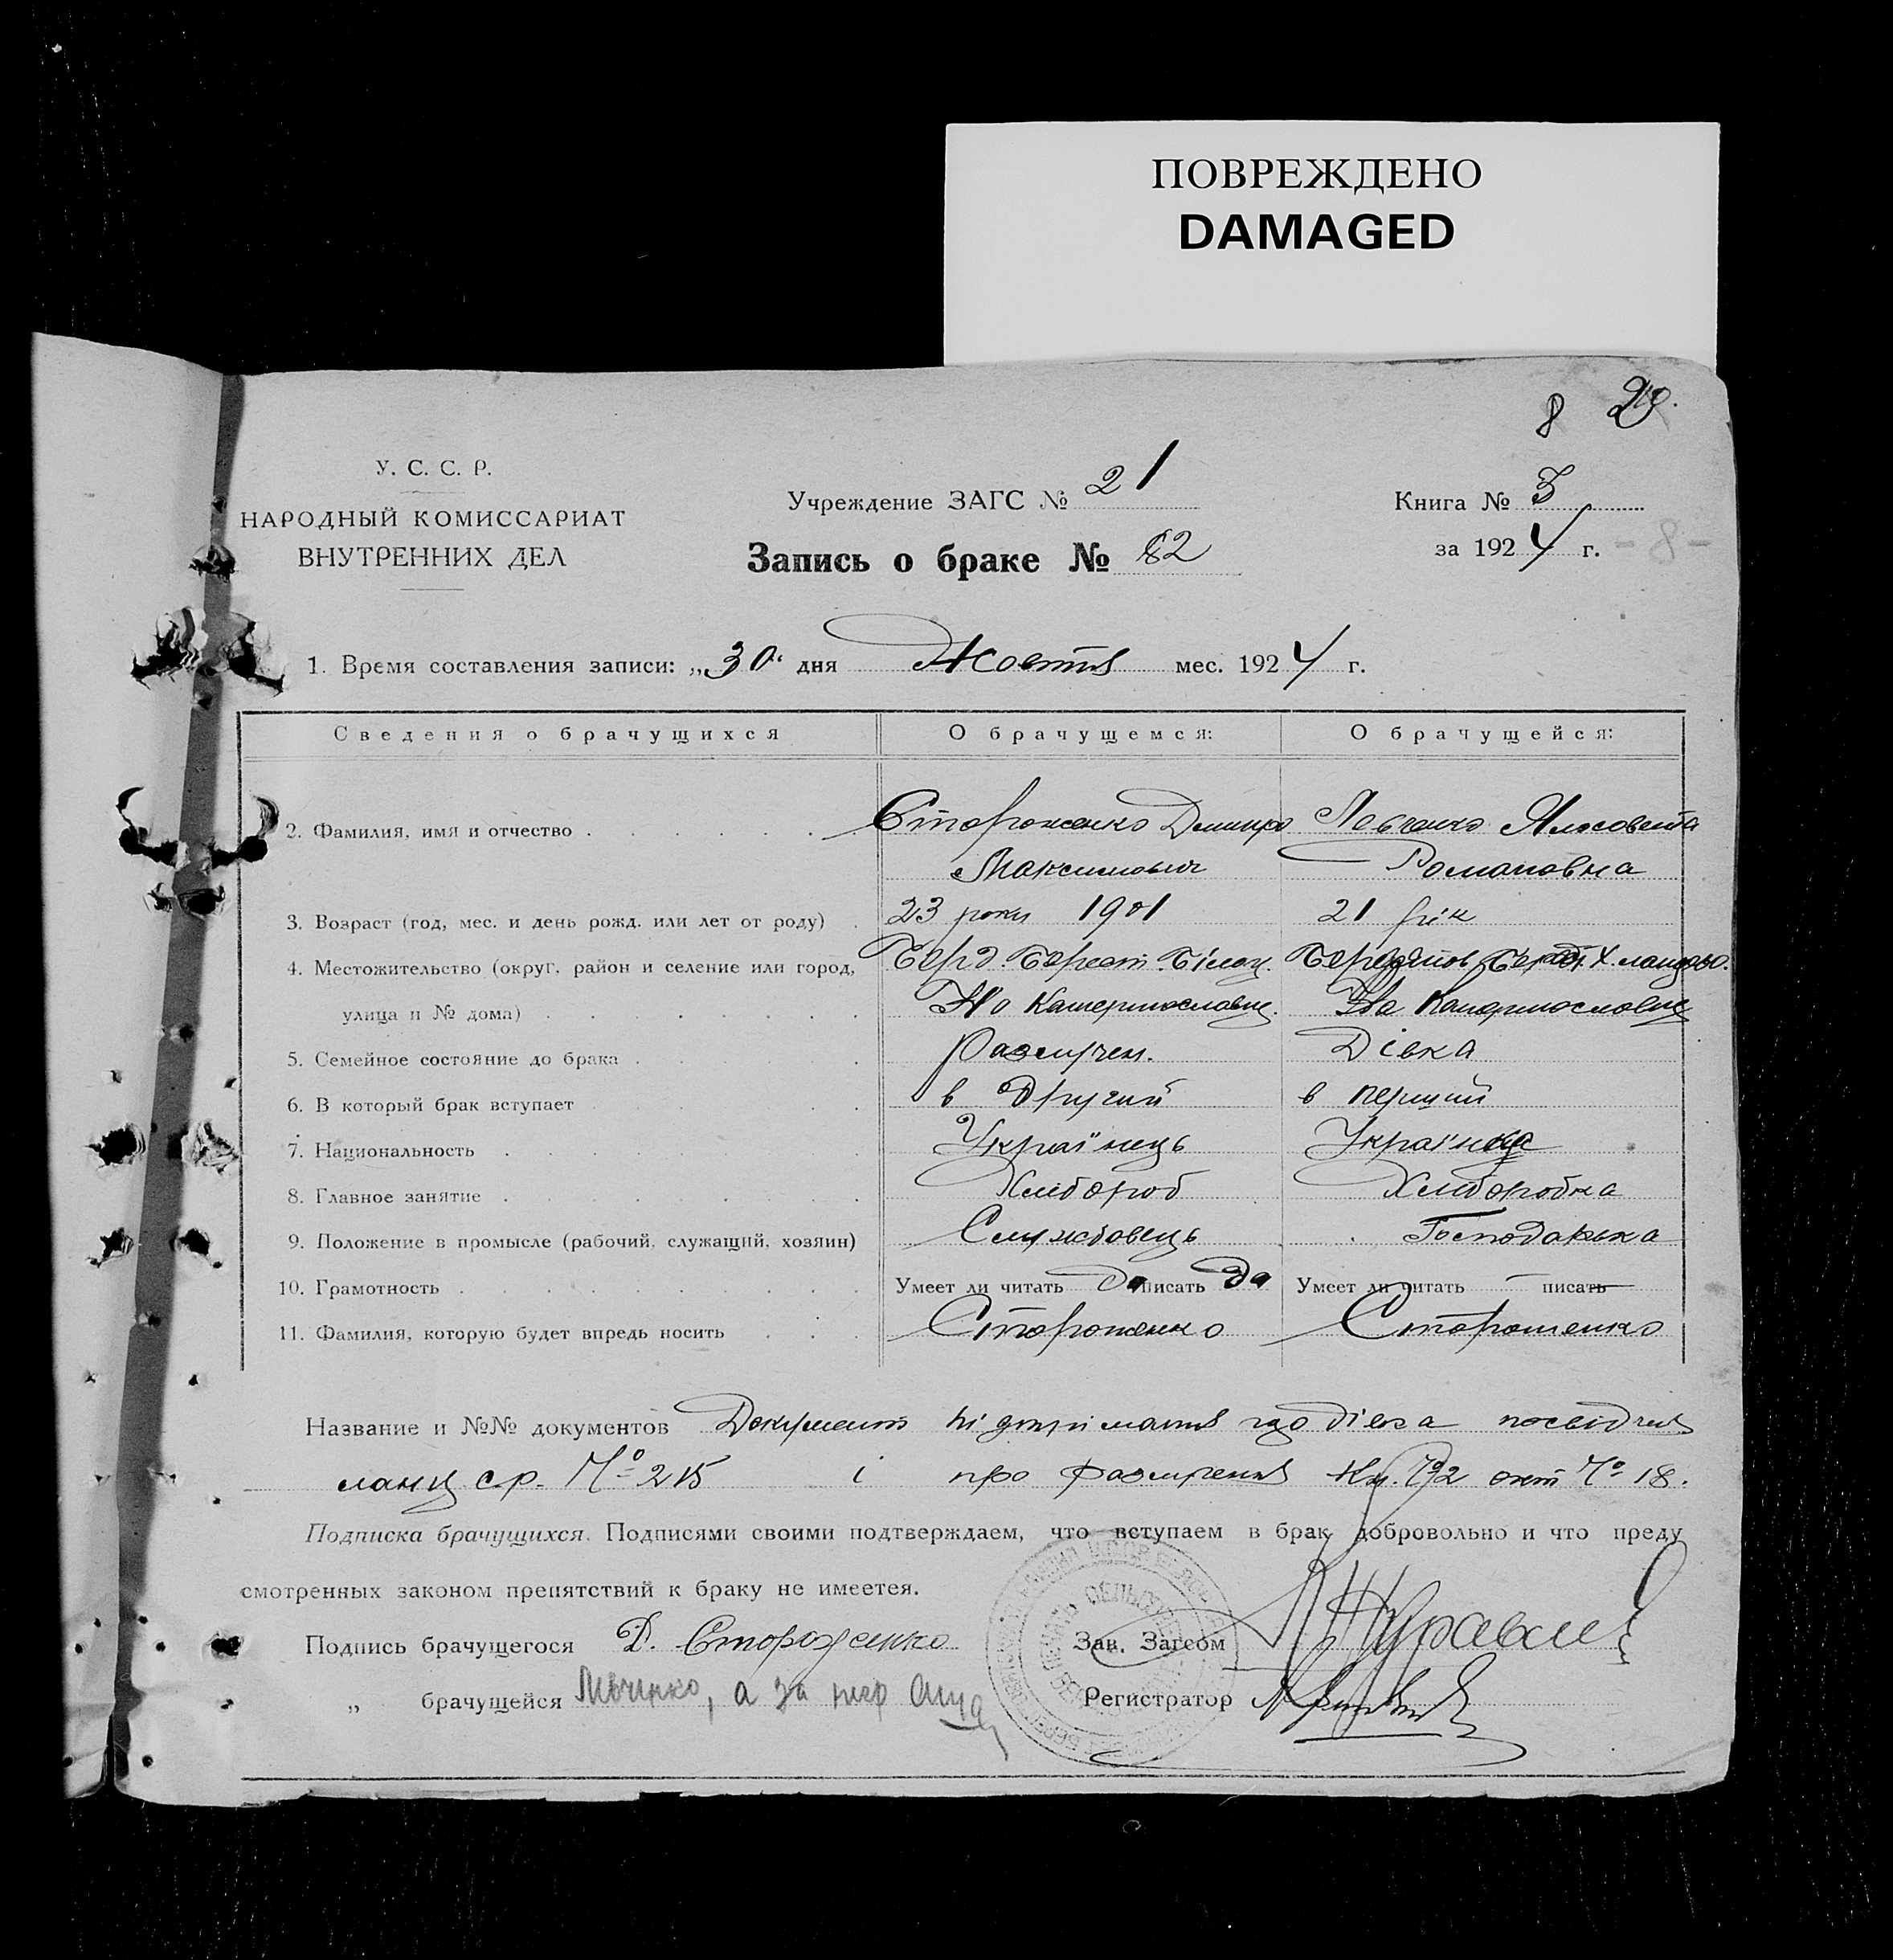 ПОВРЕЖДЕНО
DAMAGED
8
У. С. С. Р.
НАРОДНЫЙ КОМИССАРИАТ
ВНУТРЕННИХ ДЕЛ
Учреждение ЗАГС № 21
Запись о браке № 82
Книга №
за 1924 г. - 8 -
1. Время составления записи: „30“ дня Жовтня мес. 1924 г.
Сведения о брачущихся О брачущемся: О брачущейся:
2. Фамилия, имя и отчество Стороженко Дмитро Левченко Ялисовета
Максимович Романовна
3. Возраст (год, мес. и день рожд. или лет от роду) 23 роки 1901 21 рік
4. Местожительство (округ, район и селение или город, Берд. Берест.
улица и № дома) Катеринославц.
5. Семейное состояние до брака Разлучен. Дівка
6. В который брак вступает в другий в перший
7. Национальность Украінець Украінка
8. Главное занятие Хлибороб Хлиборобка
9. Положение в промысле (рабочий, служащий, хозяин) Службовець Господарька
10. Грамотность Умеет ли читать Да писать Да Умеет ли читать — писать —
11. Фамилия, которую будет впредь носить Стороженко Стороженко
Название и №№ документов Документ що дівка посвідчен
№ 215 і про разлучення Кн. № 2 акт № 18.
Подписка брачущихся. Подписями своими подтверждаем, что вступаем в брак добровольно и что преду
смотренных законом препятствий к браку не имеется.
Подпись брачущегося Д. Стороженко Зав. Загсом
„ брачущейся Левченко, а за неё Регистратор